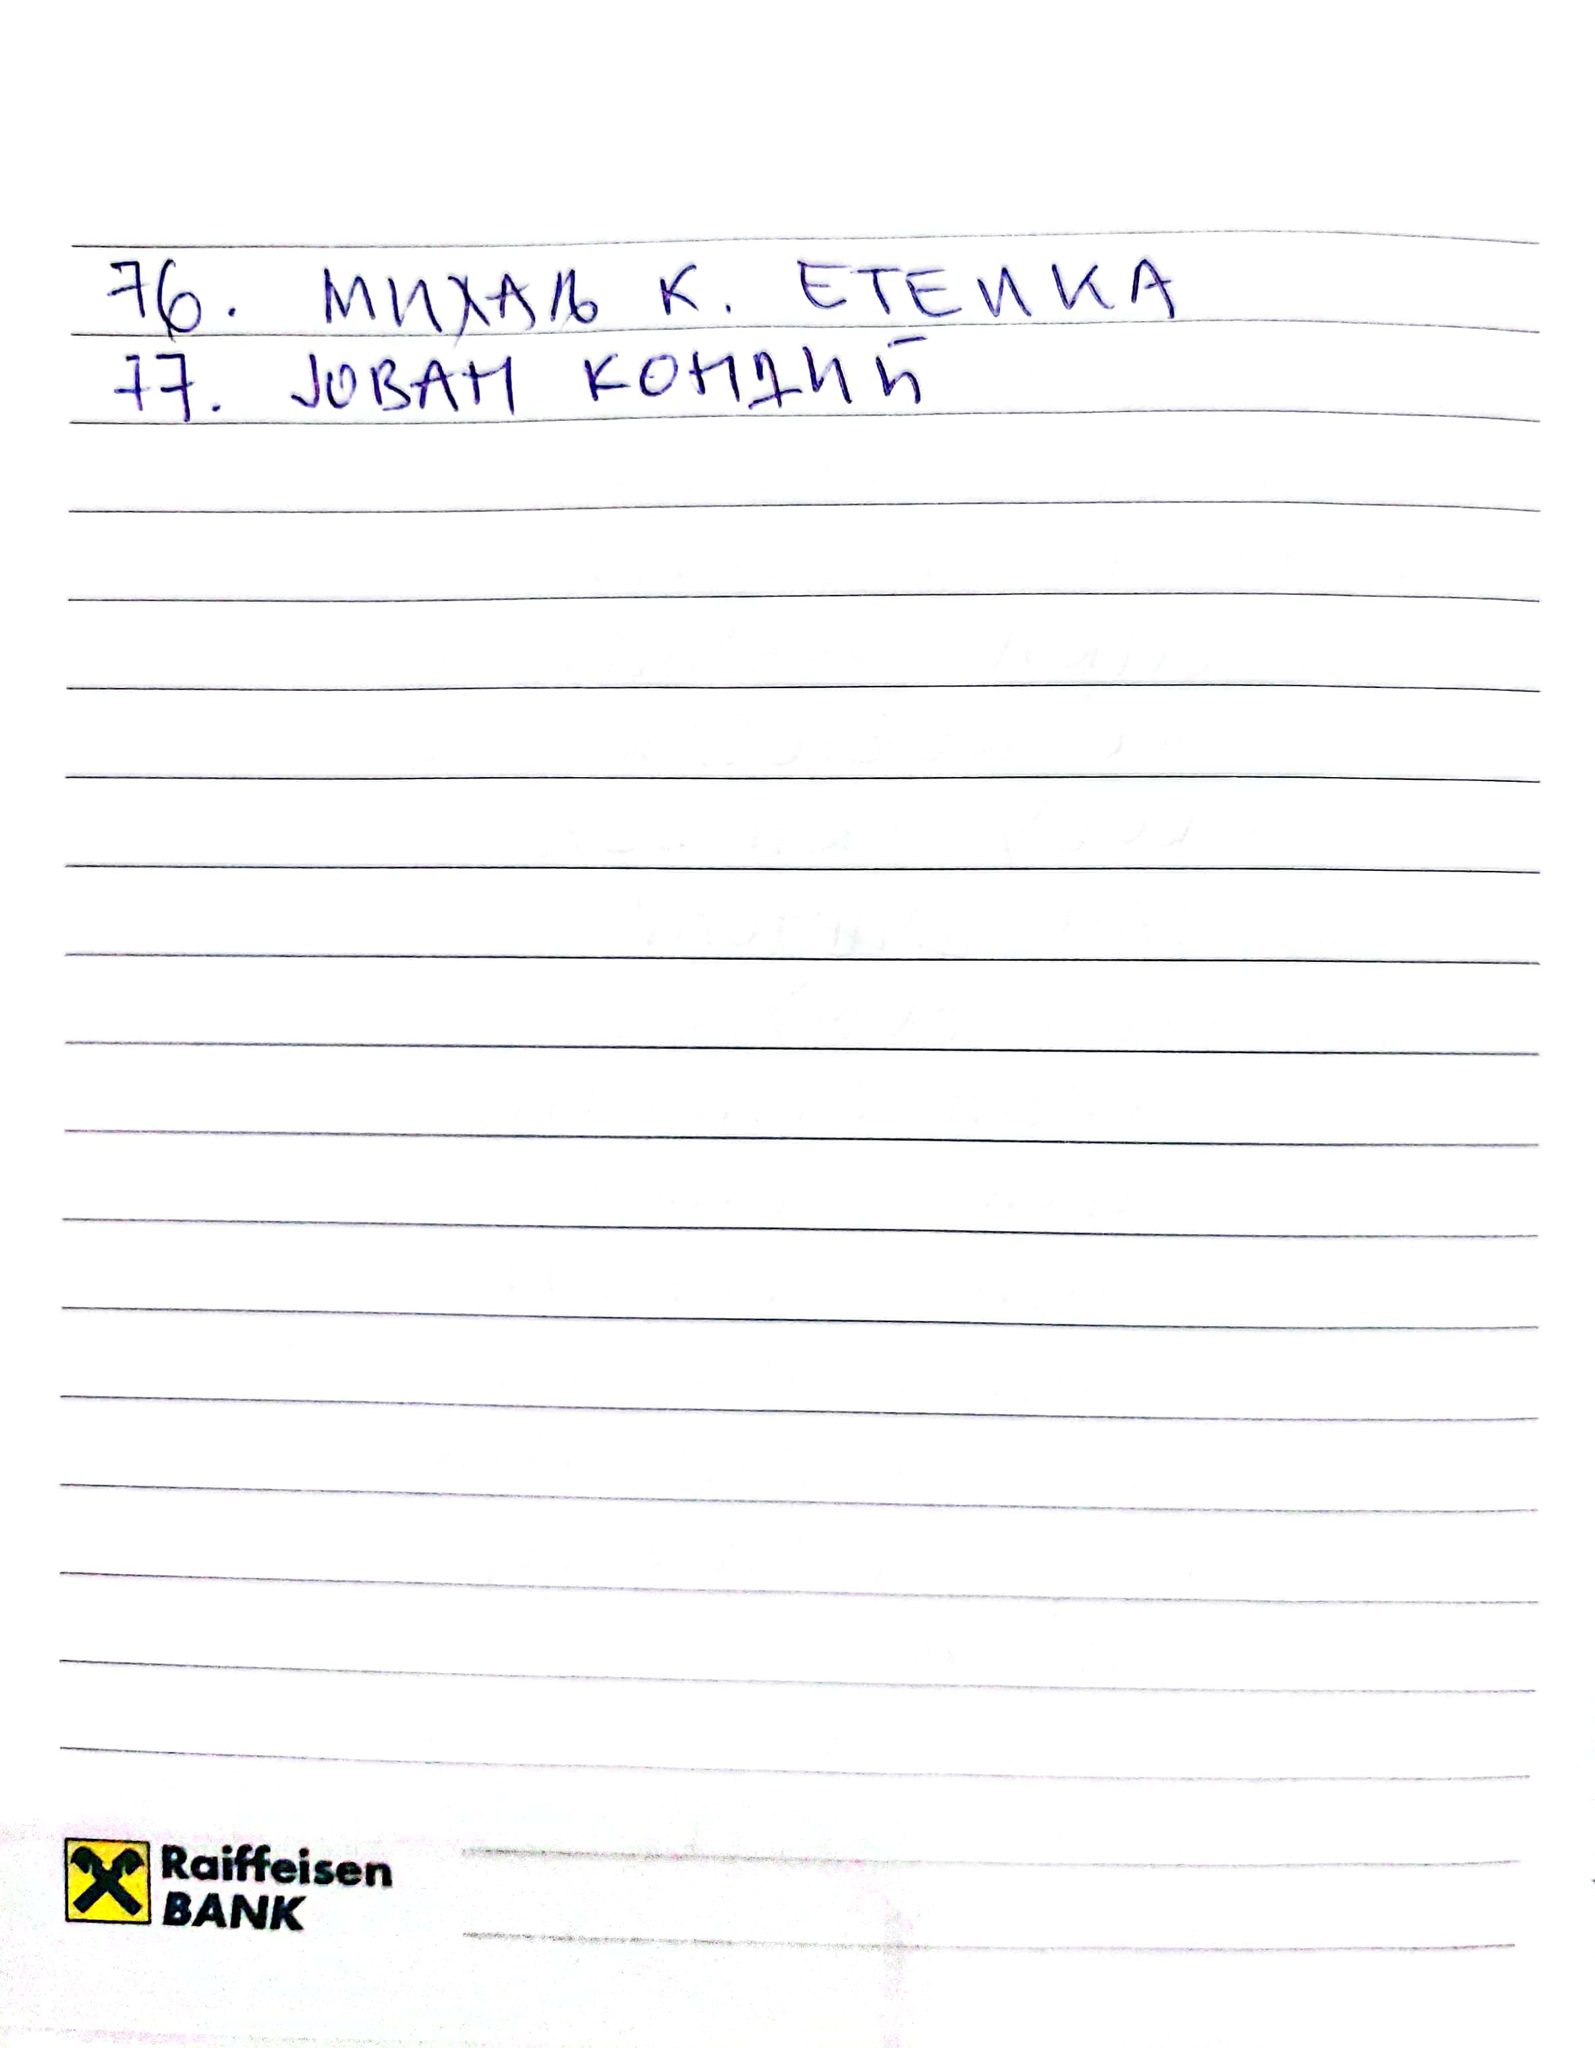 76. МИХАЉ К. ЕТЕИКА
77. ЈОВАН КОНДИЙ
Raiffeisen
BANK